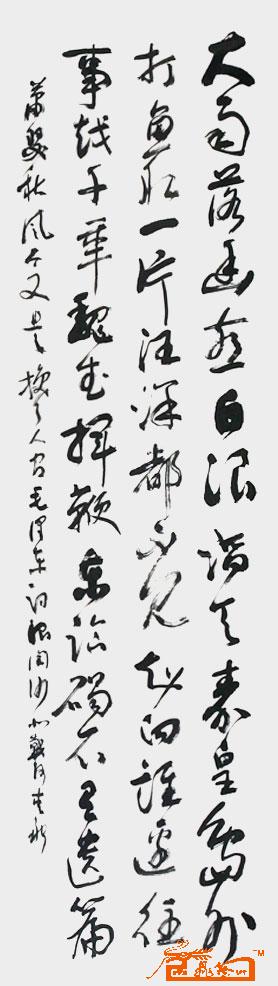 大雨落幽燕白浪滔天秦皇岛外
打鱼船一片汪洋都不见知向谁边往
事越千年魏武挥鞭东临碣石有遗篇
萧瑟秋风今又是换了人间毛泽东词浪淘沙北戴河